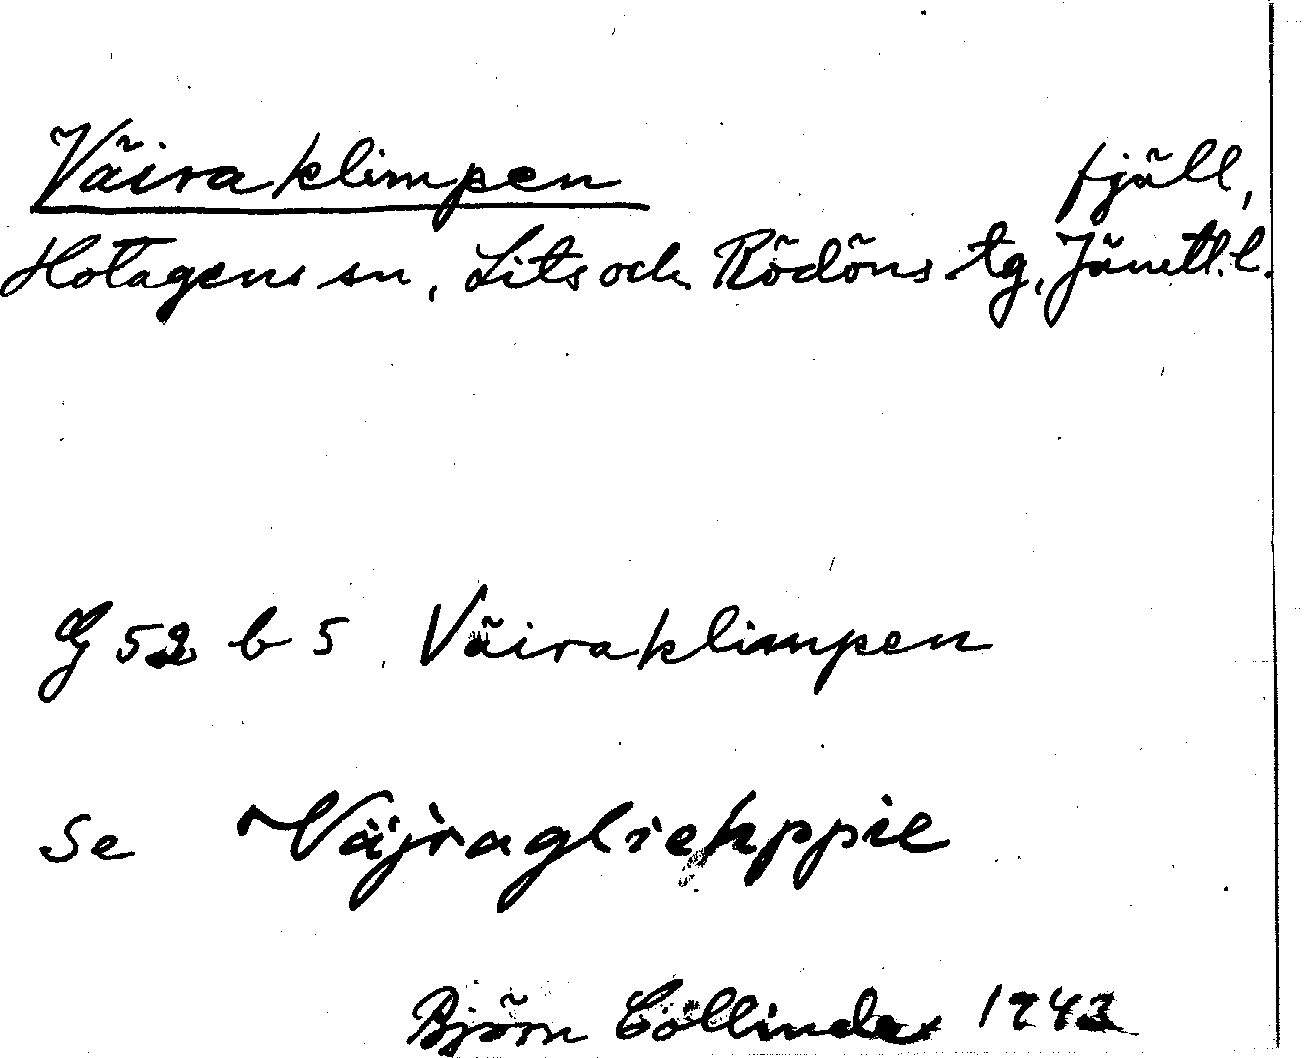 Väiraklimpen fjäll,
Hotagens sn, Lits och Rödöns tg, Jämtl. l.
G 52 b 5 Väiraklimpen
Se Väjragliehppie
Björn Collinder 1943